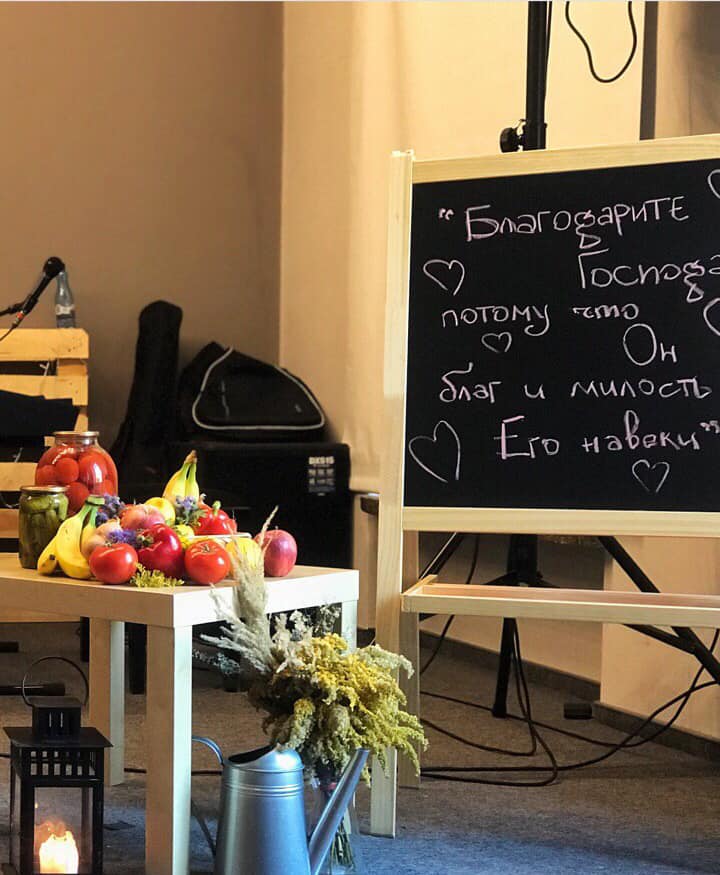 "Благодарите
Господа
потому что
Он
благ и милость
Его навеки"
BXS15